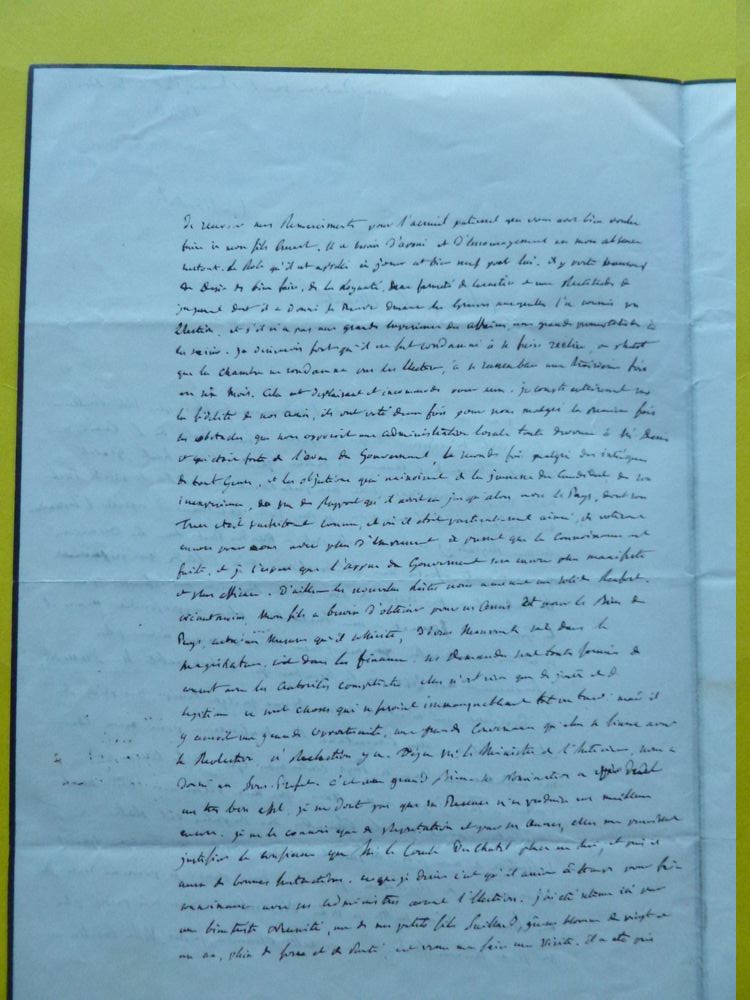 De recevoir mes Remerciments pour l'accueil paternel que vous avez bien voulu
faire à mon fils Ernest. Il a besoin d'appui et d'Encouragement en mon absence
surtout. Le Role qu'il est appelé à jouer est bien neuf pour lui. il y porte beaucoup
de Desir de bien faire, de la loyauté, une fermeté de caractère et une Rectitude de
jugement dont il a Donné la Preuve Durant les Epreuves auxquelles l'a soumis son
Election. et s'il n'a pas une grande Experience des affaires, une grande
. je désirerois fort qu'il ne fut condamné à se faire reelire, ou plutot
que la chambre ne condamne mes Electeurs, à se rassembler une troisieme fois
en six mois. Cela est deplaisant et incommode pour eux. je compte entierement sur
la fidelité de nos amis, ils ont voté deux fois pour nous malgré la premiere fois
les obstacles que nous opposoit une administration locale toute devouée à
et qui etoit forte de l'aveu du Gouvernement, la seconde fois malgré des intrigues
de tout Genre, et les objections qui naissoient de la jeunesse du Candidat de son
inexperience, du peu de Rapport qu'il avoit eu jusqu'alors avec le Pays, dont son
Frere etoit parfaitement connu, et où il etoit particulierement aimé, ils voteront
encore pour nous avec plus d'Empressement à present que la Connoissance est
faite. et j'espere que l'appui du Gouvernement sera encore plus manifeste
et plus efficace. D'ailleurs les nouvelles listes nous amenent un solide Renfort.
. Mon fils a besoin d'obtenir pour ses Amis et pour le Bien du
Pays, certaines Mesures qu'il sollicite, Divers Mouvements soit dans la
magistrature, soit dans les finances. ses Demandes sont toutes formées de
concert avec les Autorités competentes. elles n'ont rien que de juste et de
legitime ce sont choses qui se feroient immanquablement tot ou tard mais il
y auroit une grande opportunité, une grande Convenance qu'elles se fissent avant
la Reelection, si Reelection y a. Deja Mr le Ministre de l'Interieur, nous a
Donné un Sous-Prefet c'est un grand Bien. sa Nomination a
un tres bon effet. je ne Doute pas que sa Presence n'en produise un meilleur
encore. je ne le connois que de Reputation et par ses Œuvres, elles me paroissent
justifier la confiance que Mr le Comte Duchatel place en lui, et puis il
aura de bonnes Instructions. ce que je desire c'est qu'il arrive à temps pour faire
connoissance avec ses administrés avant l'Election. j'ai été retenu ici par
une bien triste, un de mes petits fils, jeune homme de vingt et
un an, plein de force et de santé, est venu me faire une visite. il a été pris